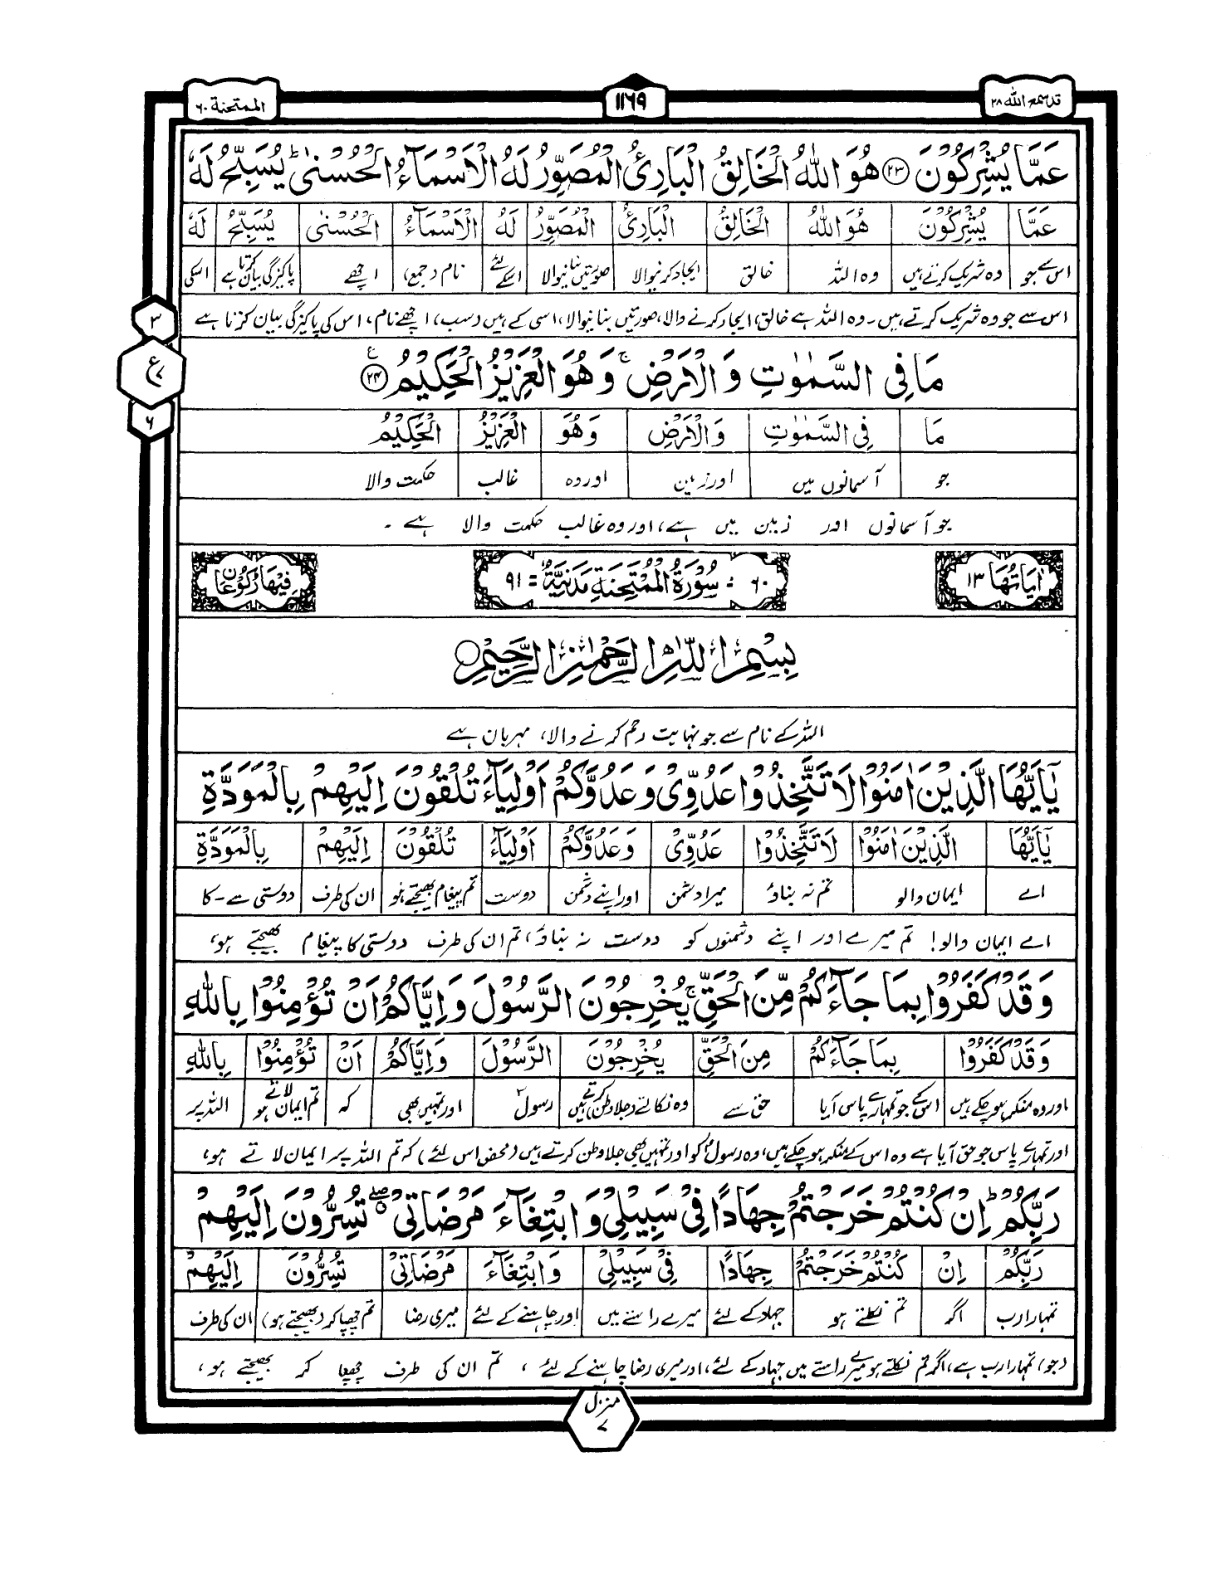 قدسمع الله ٢٨
١١٦٩
الممتحنة ٦٠
عَمَّا يُشْرِكُوْنَ ﴿٢٣﴾ هُوَ اللّٰهُ الْخَالِقُ الْبَارِئُ الْمُصَوِّرُ لَهُ الْاَسْمَآءُ الْحُسْنٰى ؕ يُسَبِّحُ لَهٗ
عَمَّا | يُشْرِكُوْنَ | هُوَ اللّٰهُ | الْخَالِقُ | الْبَارِئُ | الْمُصَوِّرُ | لَهُ | الْاَسْمَآءُ | الْحُسْنٰى | يُسَبِّحُ | لَهٗ
اس سے جو | وہ شریک کرتے ہیں | وہ اللہ | خالق | ایجاد کرنیوالا | صورتیں بنانیوالا | اسکے لئے | نام (جمع) | اچھے | پاکیزگی بیان کرتا ہے | اسکی
اس سے جو وہ شریک کرتے ہیں۔ وہ اللہ ہے خالق، ایجاد کرنے والا، صورتیں بنانیوالا، اسی کے ہیں (سب) اچھے نام، اس کی پاکیزگی بیان کرتا ہے
٣
ع
٧
٦
مَا فِى السَّمٰوٰتِ وَ الْاَرْضِ ۚ وَ هُوَ الْعَزِيْزُ الْحَكِيْمُ ﴿٢٤﴾
مَا | فِى السَّمٰوٰتِ | وَ الْاَرْضِ | وَ هُوَ | الْعَزِيْزُ | الْحَكِيْمُ
جو | آسمانوں میں | اور زمین | اور وہ | غالب | حکمت والا
جو آسمانوں اور زمین میں ہے، اور وہ غالب حکمت والا ہے ۔
اٰيَاتُهَا ١٣
٦٠ = سُوْرَةُ الْمُمْتَحِنَةِ مَدَنِيَّةٌ = ٩١
فِيْهَا رُكُوْعَانِ
بِسْمِ اللّٰهِ الرَّحْمٰنِ الرَّحِيْمِ
اللہ کے نام سے جو نہایت رحم کرنے والا، مہربان ہے
يٰۤاَيُّهَا الَّذِيْنَ اٰمَنُوْا لَا تَتَّخِذُوْا عَدُوِّىْ وَ عَدُوَّكُمْ اَوْلِيَآءَ تُلْقُوْنَ اِلَيْهِمْ بِالْمَوَدَّةِ
يٰۤاَيُّهَا | الَّذِيْنَ اٰمَنُوْا | لَا تَتَّخِذُوْا | عَدُوِّىْ | وَ عَدُوَّكُمْ | اَوْلِيَآءَ | تُلْقُوْنَ | اِلَيْهِمْ | بِالْمَوَدَّةِ
اے | ایمان والو | تم نہ بناؤ | میرا دشمن | اور اپنے دشمن | دوست | تم پیغام بھیجتے ہو | ان کی طرف | دوستی سے - کا
اے ایمان والو! تم میرے اور اپنے دشمنوں کو دوست نہ بناؤ، تم ان کی طرف دوستی کا پیغام بھیجتے ہو،
وَ قَدْ كَفَرُوْا بِمَا جَآءَكُمْ مِّنَ الْحَقِّ ۚ يُخْرِجُوْنَ الرَّسُوْلَ وَ اِيَّاكُمْ اَنْ تُؤْمِنُوْا بِاللّٰهِ
وَ قَدْ كَفَرُوْا | بِمَا جَآءَكُمْ | مِنَ الْحَقِّ | يُخْرِجُوْنَ | الرَّسُوْلَ | وَ اِيَّاكُمْ | اَنْ | تُؤْمِنُوْا | بِاللّٰهِ
اور وہ منکر ہو چکے ہیں | اس کے جو تمہارے پاس آیا | حق سے | وہ نکالتے (جلاوطن) کرتے ہیں | رسولؐ | اور تمہیں بھی | کہ | تم ایمان لاتے ہو | اللہ پر
اور تمہارے پاس جو حق آیا ہے وہ اس کے منکر ہو چکے ہیں، وہ رسولؐ کو اور تمہیں بھی جلاوطن کرتے ہیں (محض اس لئے) کہ تم اللہ پر ایمان لاتے ہو،
رَبِّكُمْ ؕ اِنْ كُنْتُمْ خَرَجْتُمْ جِهَادًا فِىْ سَبِيْلِىْ وَ ابْتِغَآءَ مَرْضَاتِىْ ۖ تُسِرُّوْنَ اِلَيْهِمْ
رَبِّكُمْ | اِنْ | كُنْتُمْ خَرَجْتُمْ | جِهَادًا | فِىْ سَبِيْلِىْ | وَ ابْتِغَآءَ | مَرْضَاتِىْ | تُسِرُّوْنَ | اِلَيْهِمْ
تمہارا رب | اگر | تم نکلتے ہو | جہاد کے لئے | میرے راستے میں | اور چاہنے کے لئے | میری رضا | تم چھپا کر (بھیجتے ہو) | ان کی طرف
(جو) تمہارا رب ہے، اگر تم نکلتے ہو میرے راستے میں جہاد کے لئے، اور میری رضا چاہنے کے لئے، تم ان کی طرف چھپا کر بھیجتے ہو،
منزل
٧